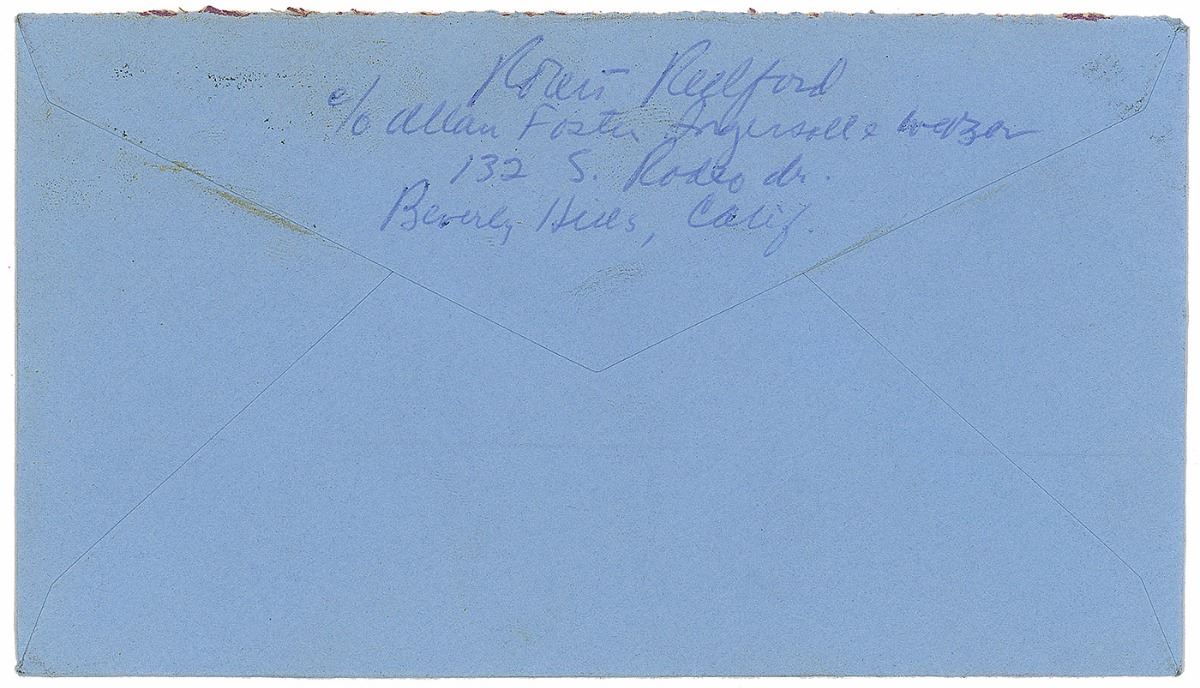 Robert Redford
c/o Allan Foster Ingersoll & Weber
132 S. Rodeo dr.
Beverly Hills, Calif.